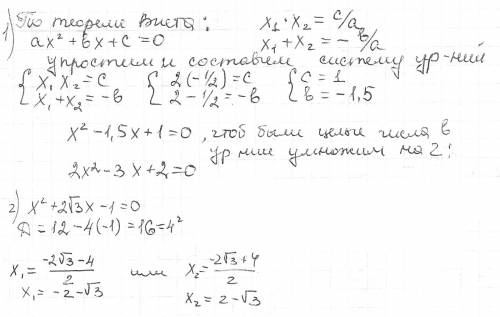 1) По теореме Виета: x₁·x₂ = c/a
ax² + bx + c = 0 x₁ + x₂ = -b/a
упростим и составим систему ур-ний
{ x₁x₂ = c { 2(-1/2) = c { c = 1
{ x₁ + x₂ = -b { 2 - 1/2 = -b { b = -1,5
x² - 1,5x + 1 = 0, чтоб были целые числа в
ур-нии умножим на 2:
2x² - 3x + 2 = 0
2) x² + 2√3x - 1 = 0
Д = 12 - 4(-1) = 16 = 4²
x₁ = (-2√3 - 4)/2 или x₂ = (-2√3 + 4)/2
x₁ = -2 - √3 x₂ = 2 - √3